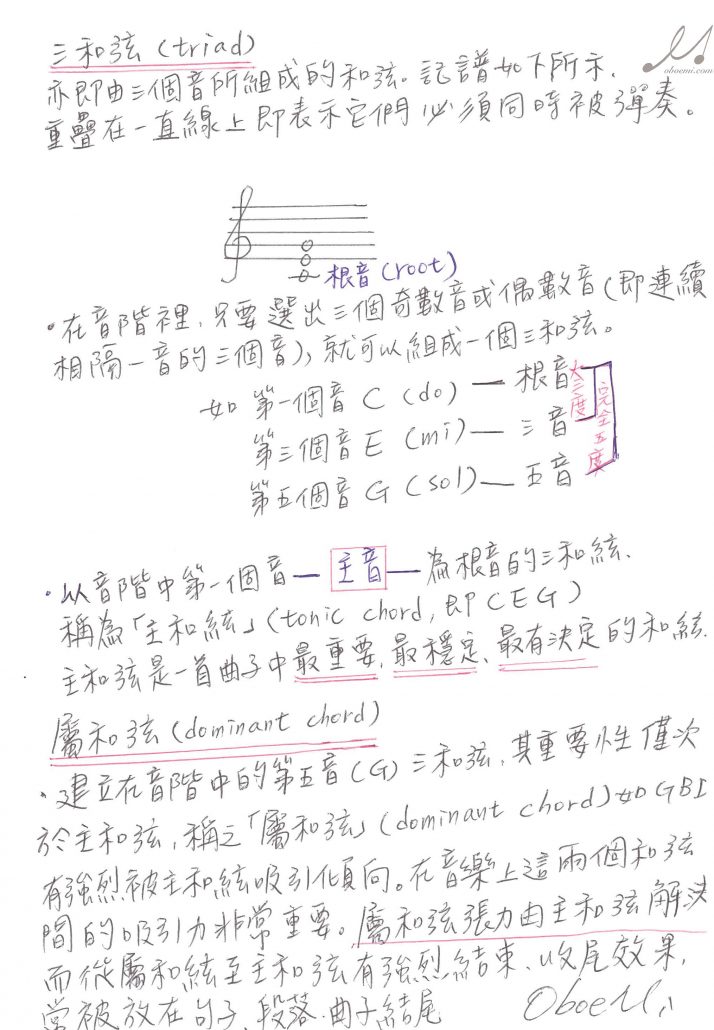 oboemi.com
三和弦 (triad)
亦即由三個音所組成的和弦。記譜如下所示,
重疊在一直線上即表示它們必須同時被彈奏。
根音 (root)
•在音階裡,只要選出三個奇數音或偶數音(即連續
相隔一音的三個音),就可以組成一個三和弦。
如 第一個音 C (do) — 根音
第三個音 E (mi) — 三音
第五個音 G (sol) — 五音
大三度
完全五度
•以音階中第一個音—主音—為根音的三和絃、
稱為「主和絃」(tonic chord, 即 CEG)
主和弦是一首曲子中最重要、最穩定、最有決定的和絃.
屬和弦 (dominant chord)
•建立在音階中的第五音(G)三和弦,其重要性僅次
於主和弦,稱之「屬和弦」(dominant chord) 如 GBD
有強烈被主和絃吸引傾向。在音樂上這兩個和弦
間的吸引力非常重要。屬和弦張力由主和弦解決
而從屬和絃至主和弦有強烈結束、收尾效果,
常被放在句子、段落、曲子結尾
OboeMi